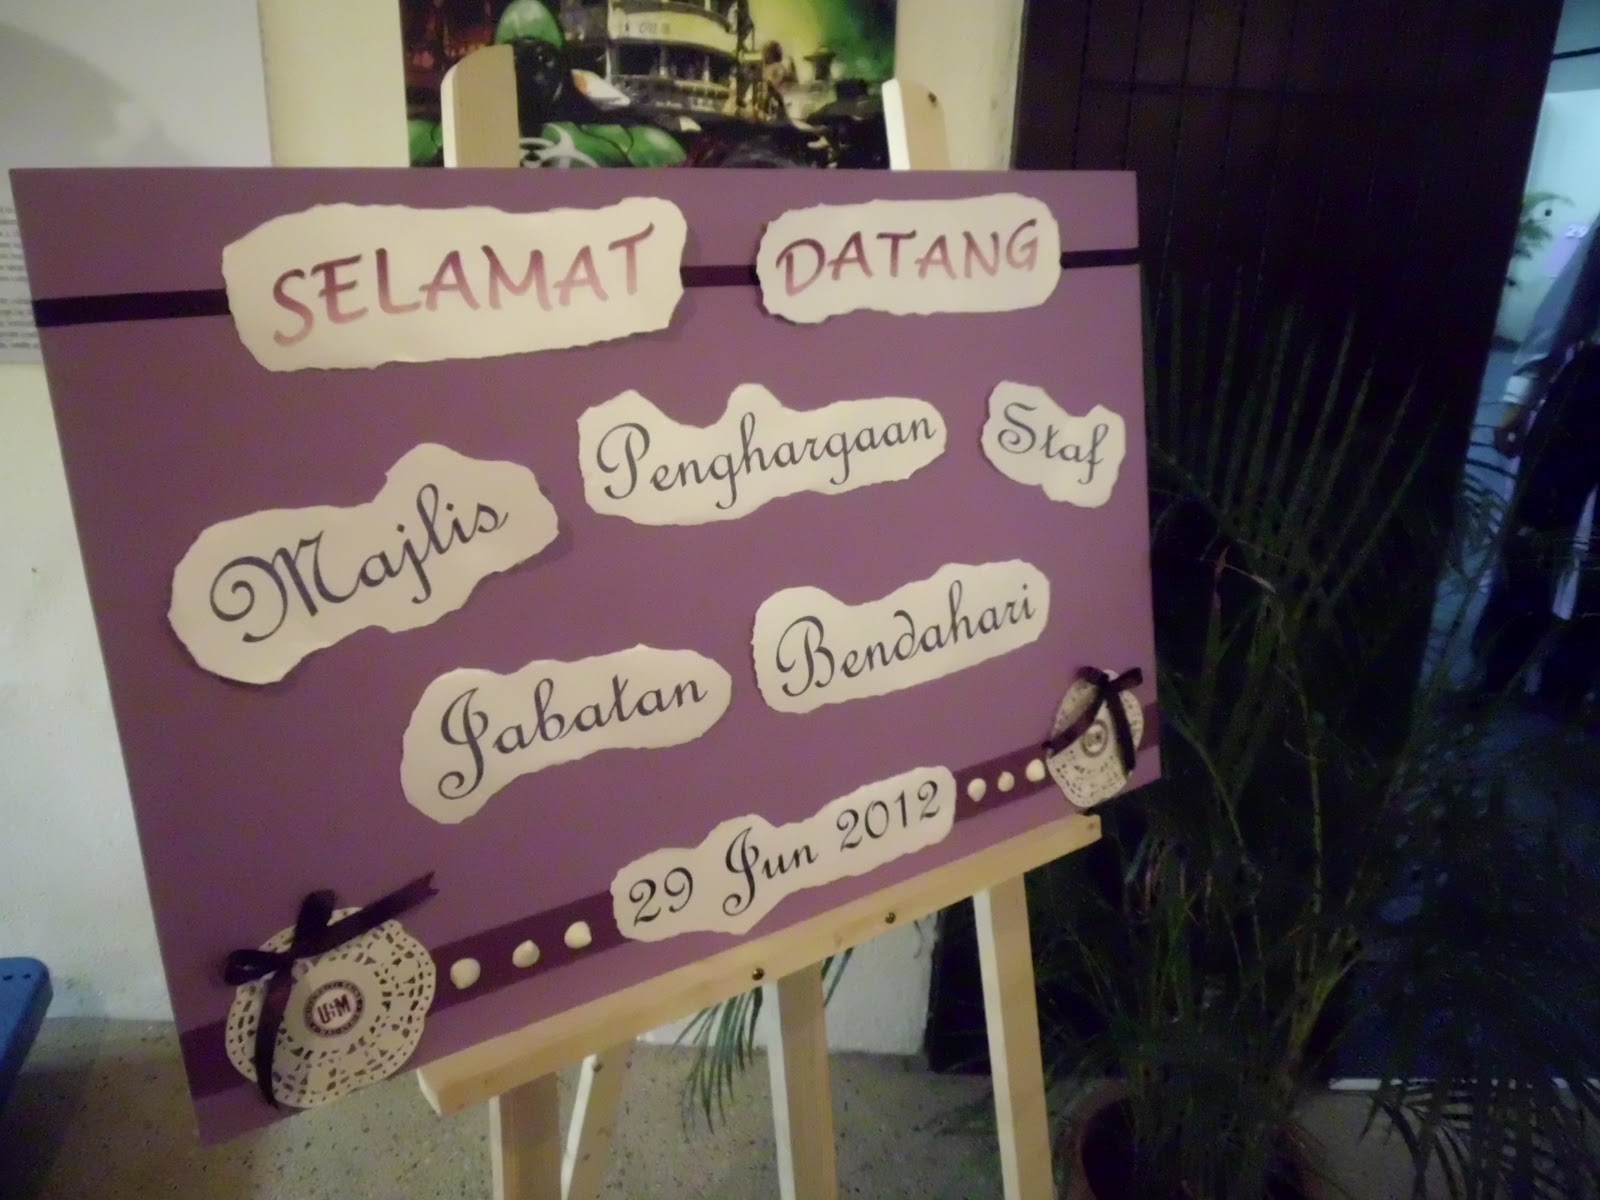 SELAMAT DATANG
Majlis Penghargaan Staf
Jabatan Bendahari
29 Jun 2012